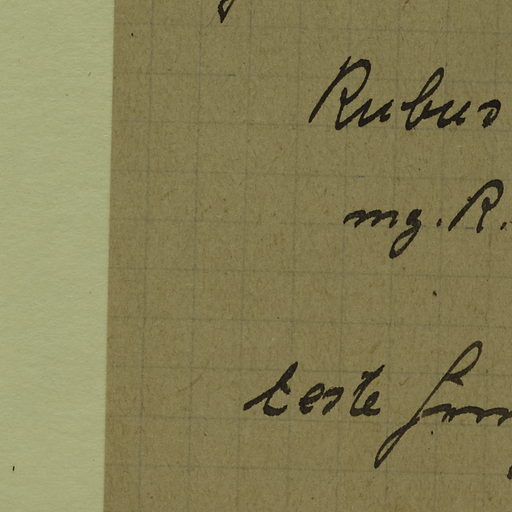 Rubus
mg. R.
teste